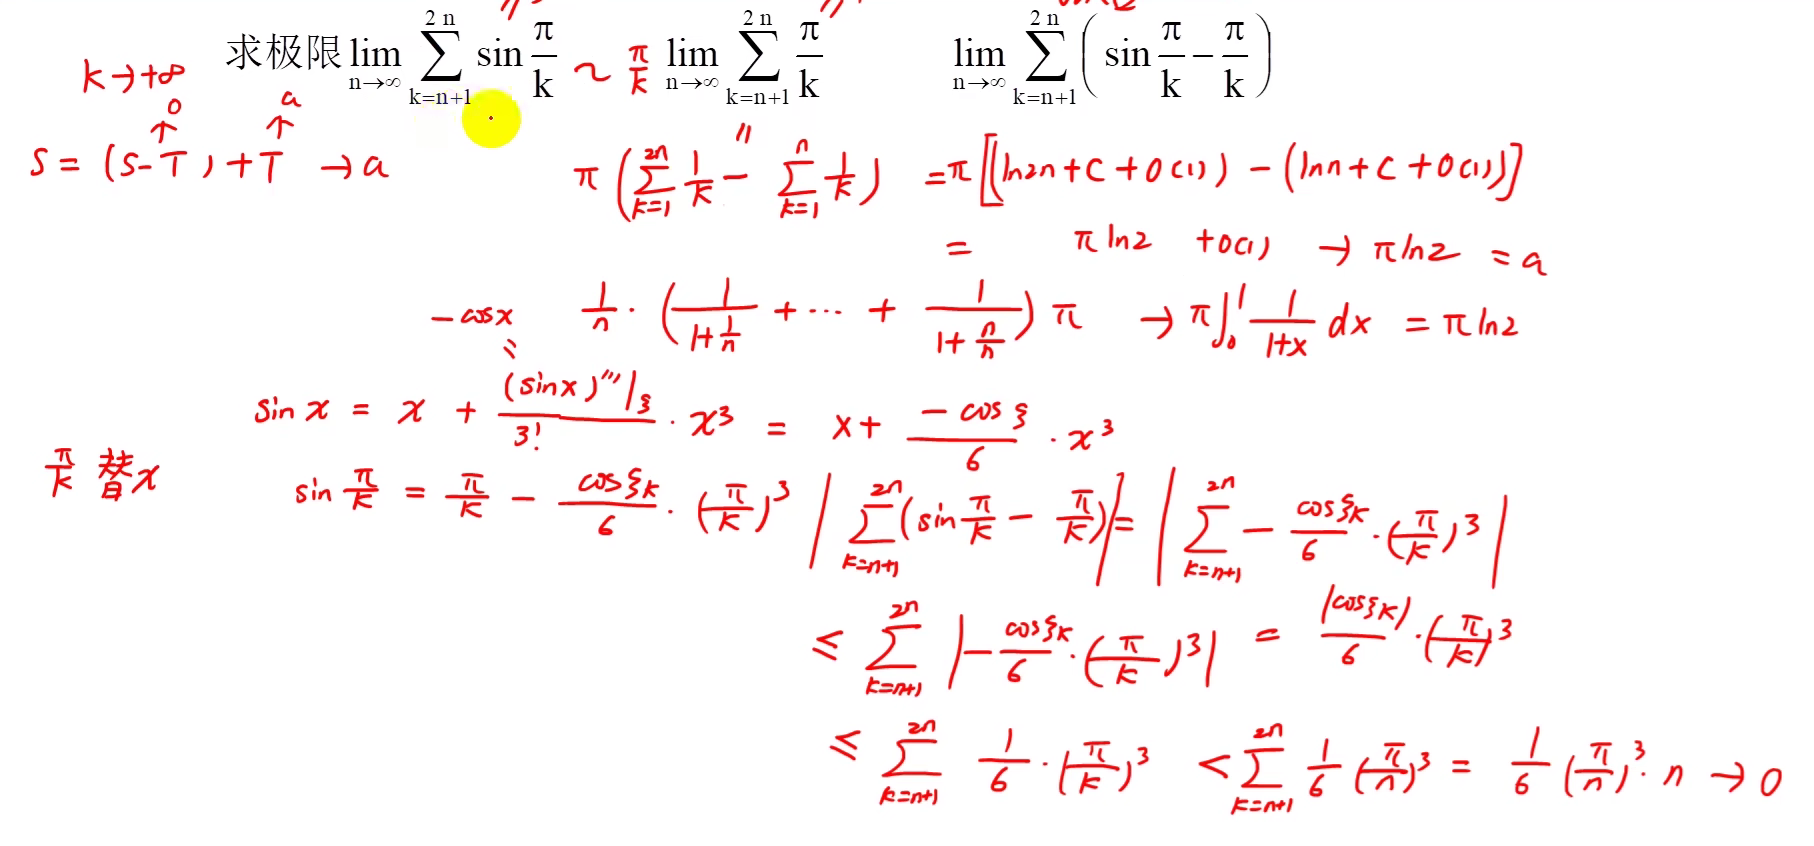 求极限 lim_{n→∞} ∑_{k=n+1}^{2n} sin π/k ~ π/k lim_{n→∞} ∑_{k=n+1}^{2n} π/k lim_{n→∞} ∑_{k=n+1}^{2n} (sin π/k − π/k)
k→+∞
0 a
↑ ↑
S = (S-T) + T → a
〃
π(∑_{k=1}^{2n} 1/k − ∑_{k=1}^{n} 1/k) = π[(ln2n + C + o(1)) − (lnn + C + o(1))]
= πln2 + o(1) → πln2 = a
1/n · (1/(1+1/n) + ··· + 1/(1+n/n)) π → π∫_0^1 1/(1+x) dx = πln2
−cosx
sinx = x + (sinx)'''|_ξ / 3! · x^3 = x + −cosξ/6 · x^3
π/k 替x
sin π/k = π/k − cosξ_k/6 · (π/k)^3 |∑_{k=n+1}^{2n} (sin π/k − π/k)| = |∑_{k=n+1}^{2n} − cosξ_k/6 · (π/k)^3|
≤ ∑_{k=n+1}^{2n} |− cosξ_k/6 · (π/k)^3| = |cosξ_k|/6 · (π/k)^3
≤ ∑_{k=n+1}^{2n} 1/6 · (π/k)^3 < ∑_{k=n+1}^{2n} 1/6 (π/n)^3 = 1/6 (π/n)^3 · n → 0